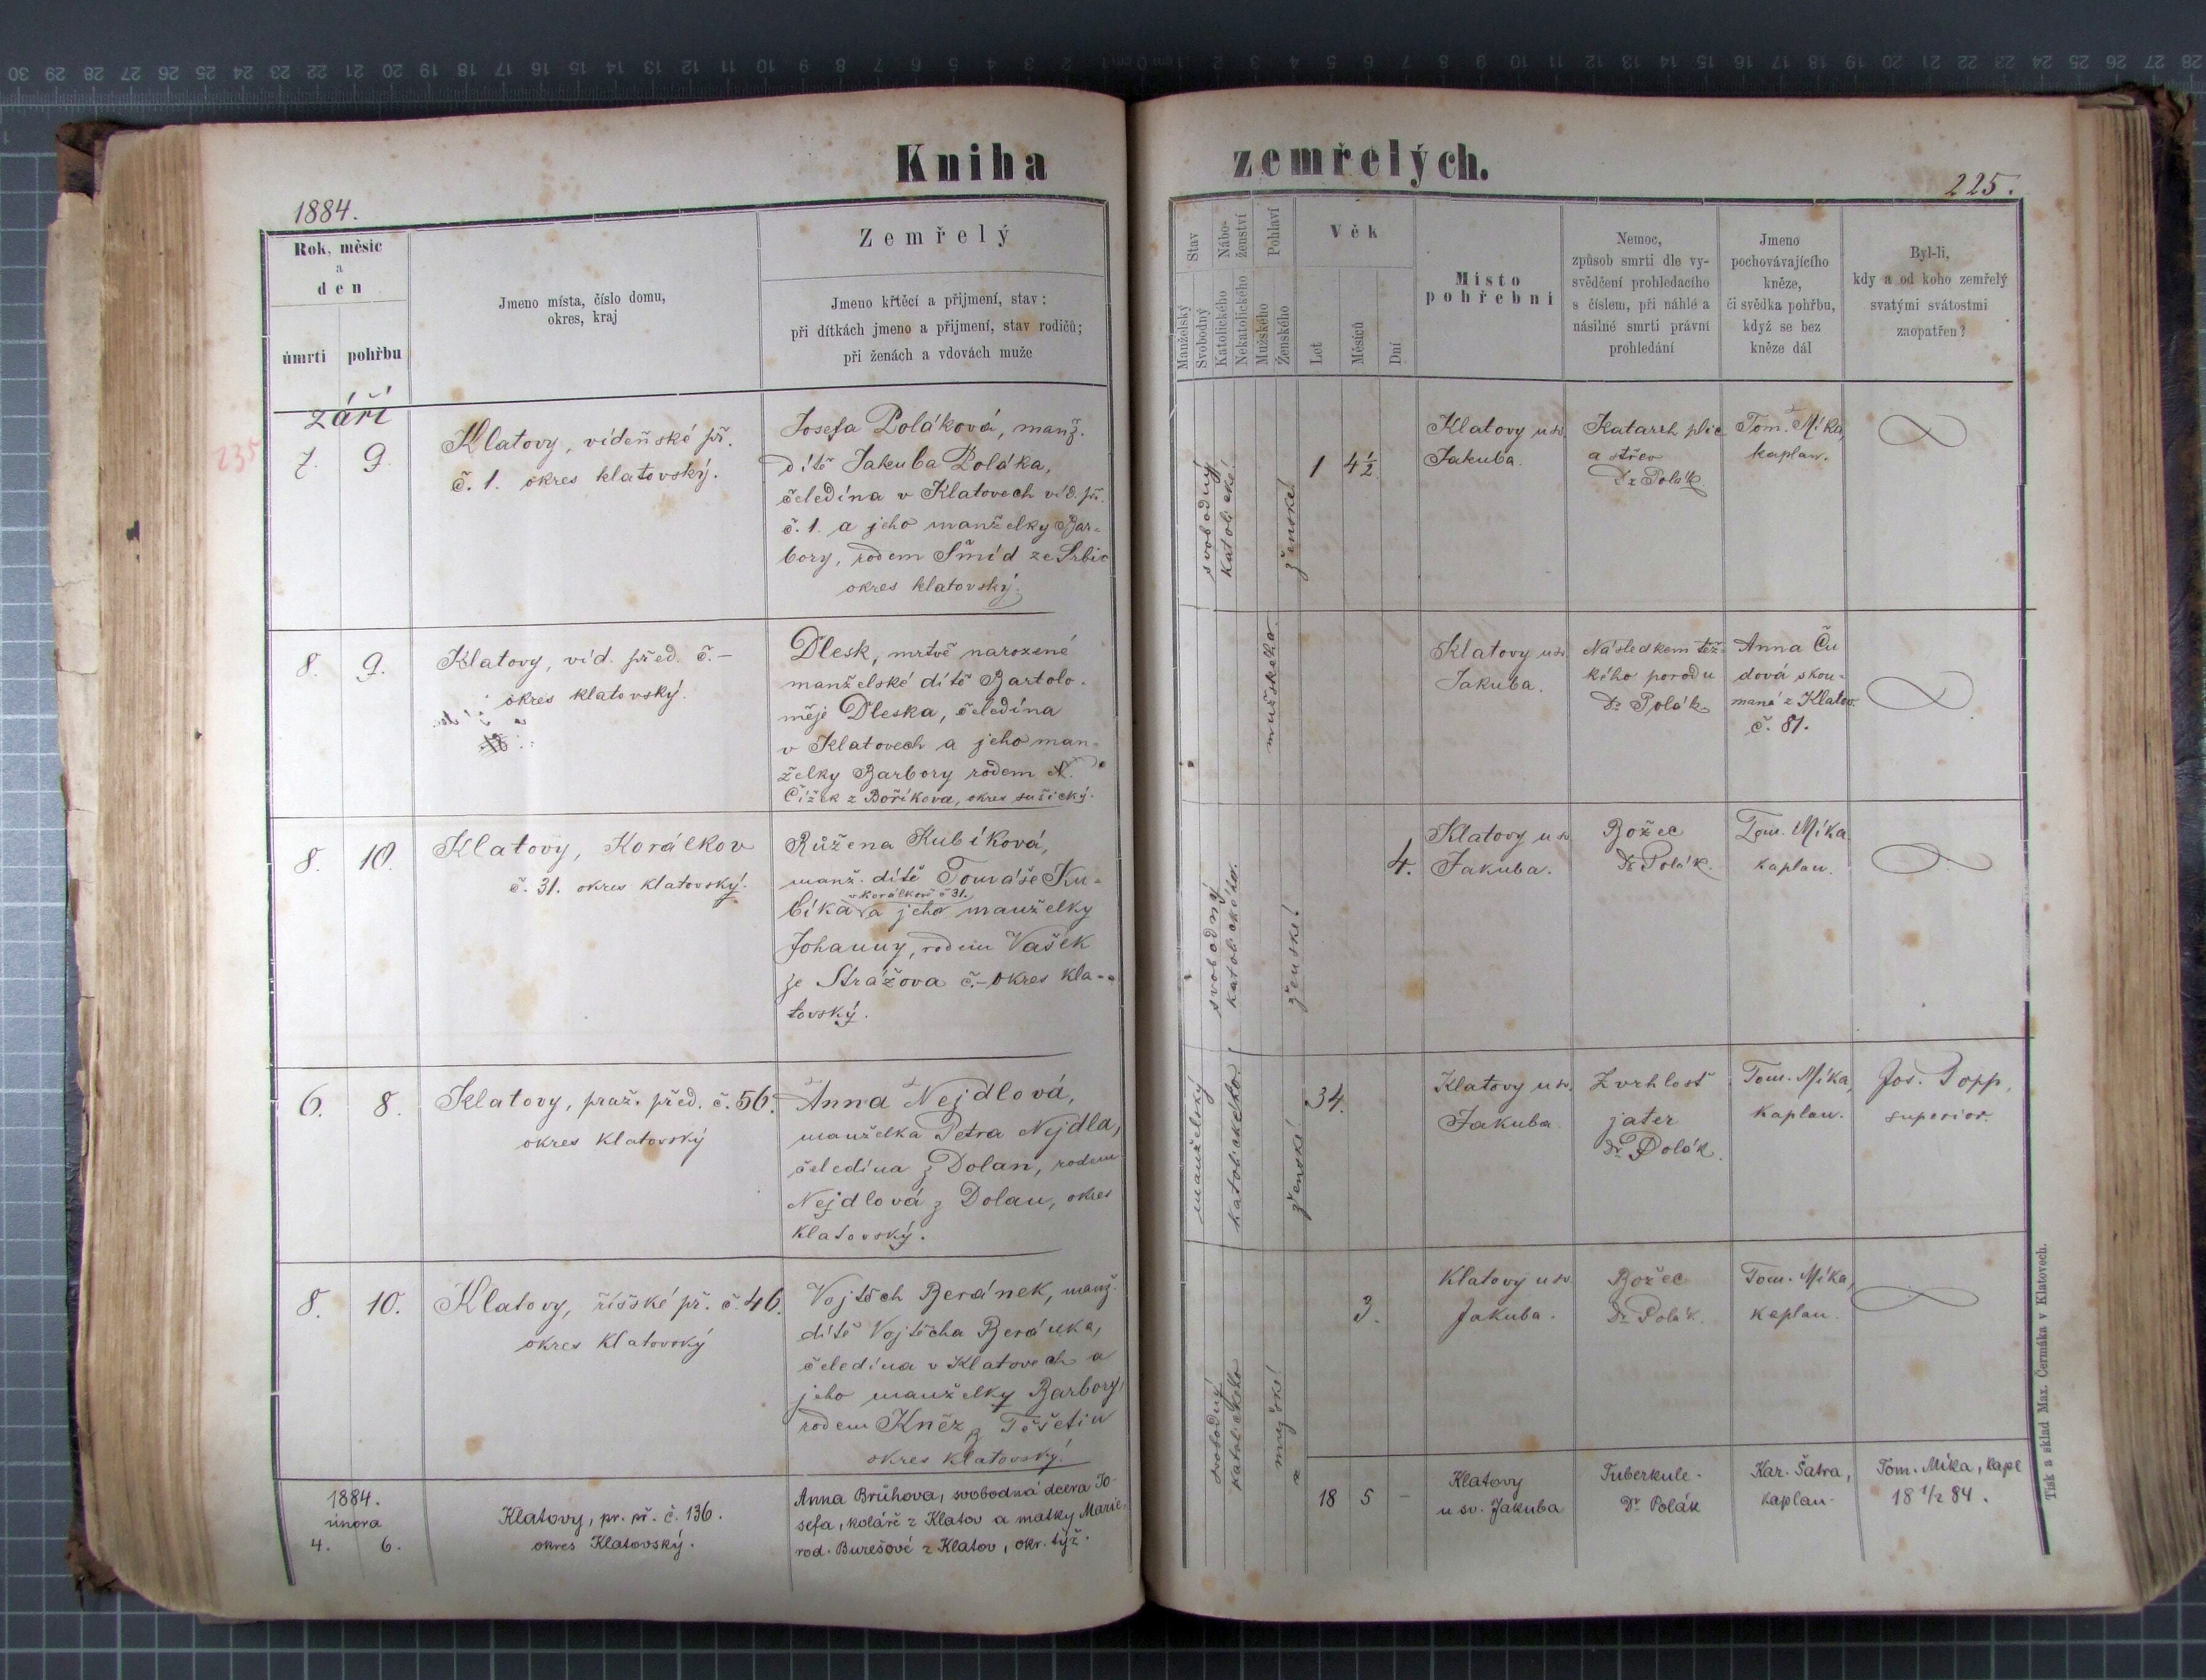 Kniha zemřelých.
1884.
225.
Rok, měsíc
a
den
úmrtí
pohřbu
Jmeno místa, číslo domu,
okres, kraj
Zemřelý
Jmeno křtěcí a přijmení, stav:
při dítkách jmeno a přijmení, stav rodičů;
při ženách a vdovách muže
Stav
Manželský
Svobodný
Nábo-
ženství
Katolického
Nekatolického
Pohlaví
Mužského
Ženského
Věk
Let
Měsíců
Dní
Místo
pohřební
Nemoc,
způsob smrti dle vy-
svědčení prohledacího
s číslem, při náhlé a
násilné smrti právní
prohledání
Jmeno
pochovávajícího
kněze,
či svědka pohřbu,
když se bez
kněze dál
Byl-li,
kdy a od koho zemřelý
svatými svátostmi
zaopatřen?
září
235
7.
9.
Klatovy, vídeňské př.
č. 1. okres klatovský.
Josefa Poláková, manž.
dítě Jakuba Poláka,
čeledína v Klatovech víd. př.
č. 1. a jeho manželky Bar-
bory, rodem Šmíd ze Srbic
okres klatovský.
svobodný
katolické
ženské
1
4½
Klatovy u sv.
Jakuba.
Katarrh plic
a střev
Dr Polák
Tom. Míka,
kaplan.
8.
9.
Klatovy, víd. před. č. –
okres klatovský.
Dlesk, mrtvě narozené
manželské dítě Bartolo-
měje Dleska, čeledína
v Klatovech a jeho man-
želky Barbory rodem N.
Čížek z Boříkova, okres sušický.
mužského
Klatovy u sv.
Jakuba.
Následkem těž-
kého porodu
Dr Polák
Anna Ču
dová skou-
maná z Klatov
č. 81.
8.
10.
Klatovy, Korálkov
č. 31. okres klatovský.
Růžena Kubíková,
manž. dítě Tomáše Ku-
v Korálkově č 31.
bíka a jeho manželky
Johanny, rodem Vašek
ze Strážova č. – okres kla-
tovský.
svobodný
katolického.
ženské
4.
Klatovy u sv.
Jakuba.
Božec
Dr Polák.
Tom. Míka
kaplan.
6.
8.
Klatovy, praž. před. č. 56.
okres klatovský
Anna Nejdlová,
manželka Petra Nejdla,
čeledína z Dolan, rodem
Nejdlová z Dolan, okres
klatovský.
manželský
katolického
ženské
34.
Klatovy u sv.
Jakuba
Zvrhlost
jater
Dr Polák.
Tom. Míka,
kaplan.
Jos. Popp,
superior.
8.
10.
Klatovy, říšské př. č. 46.
okres klatovský
Vojtěch Beránek, manž.
dítě Vojtěcha Beránka,
čeledína v Klatovech a
jeho manželky Barbory,
rodem Kněz z Těšetin
okres klatovský.
svobodný
katolického
mužské
3.
Klatovy u sv.
Jakuba.
Božec
Dr Polák.
Tom. Míka,
kaplan.
1884.
února
4.
6.
Klatovy, pr. př. č. 136.
okres Klatovský.
Anna Brühova, svobodná dcera Jo-
sefa, koláře z Klatov a matky Marie,
rod. Burešové z Klatov, okr. týž.
18
5
–
Klatovy
u sv. Jakuba
Tuberkule.
Dr Polák
Kar. Šatra,
kaplan.
Tom. Míka, kapl
18 1/2 84.
Tisk a sklad Max. Čermáka v Klatovech.